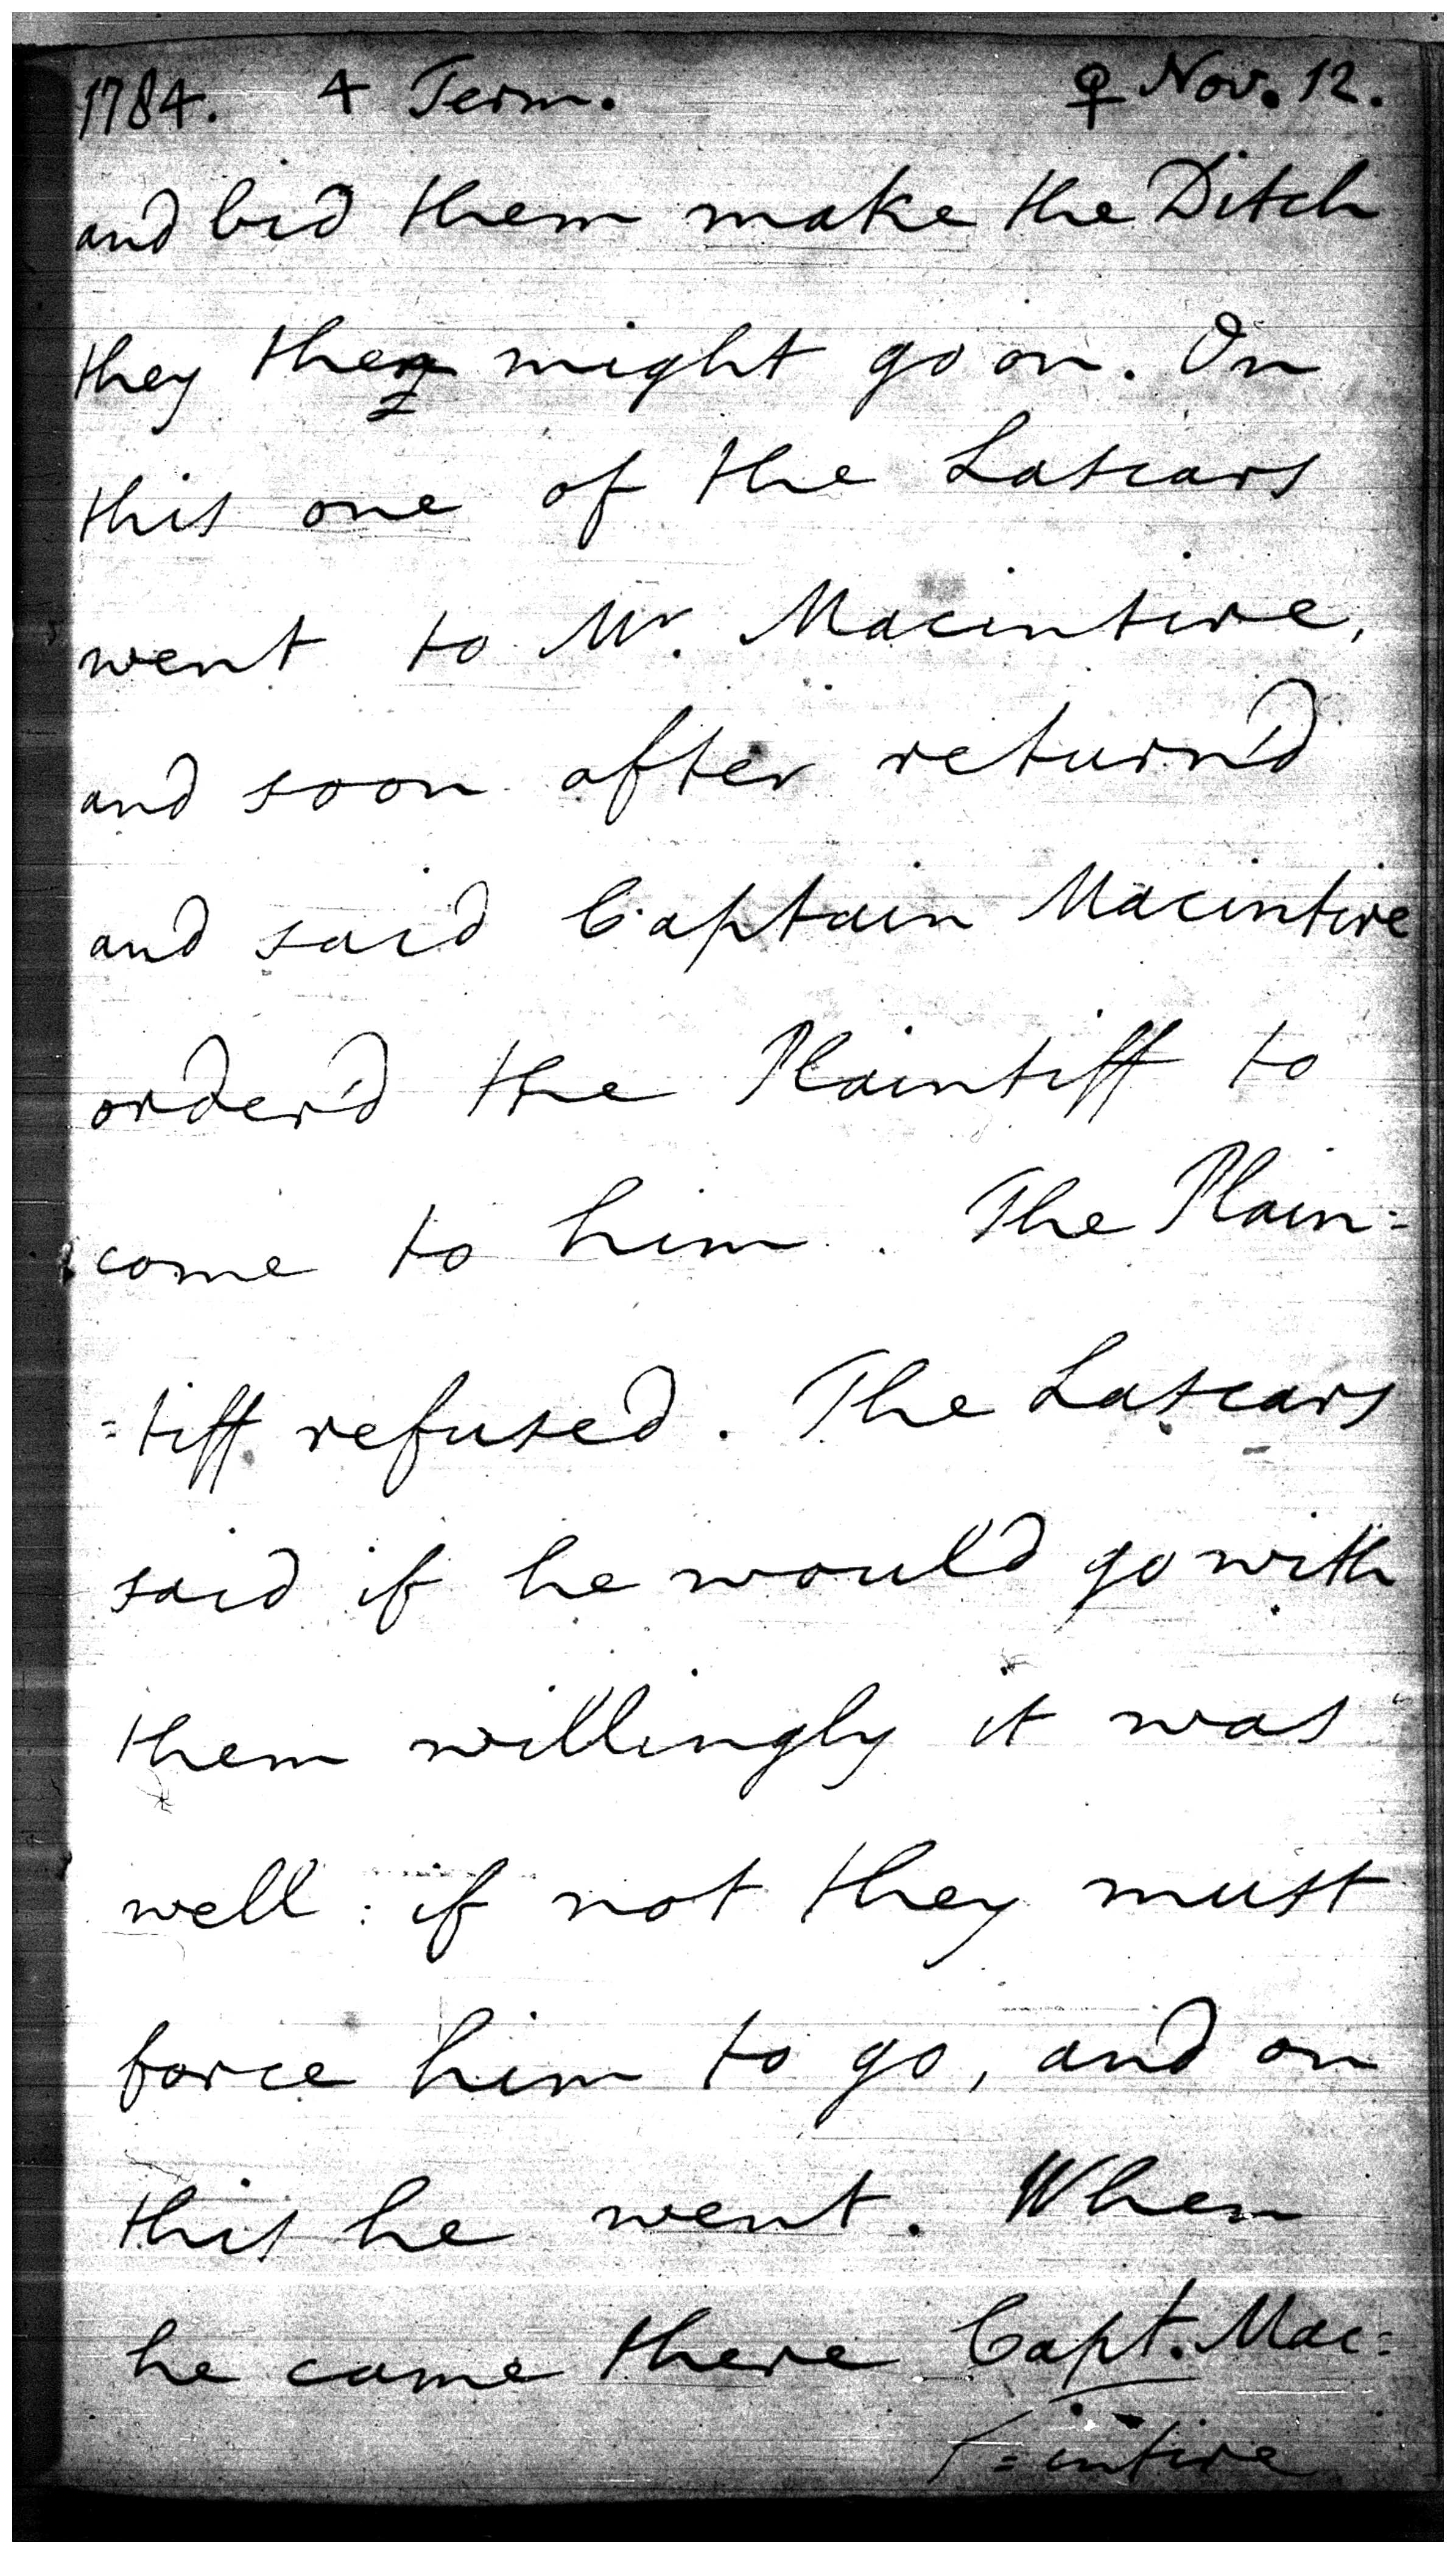 1784. 4 Term. ♀ Nov. 12.
and bid them make the Ditch
they then might go on. On
this one of the Lascars
went to Mr. Macintire,
and soon after return'd
and said Captain Macintire
order'd the Plaintiff to
come to him. The Plain=
=tiff refused. The Lascars
said if he would go with
them willingly it was
well: if not they must
force him to go, and on
this he went. When
he came there Capt. Mac=
/=intire